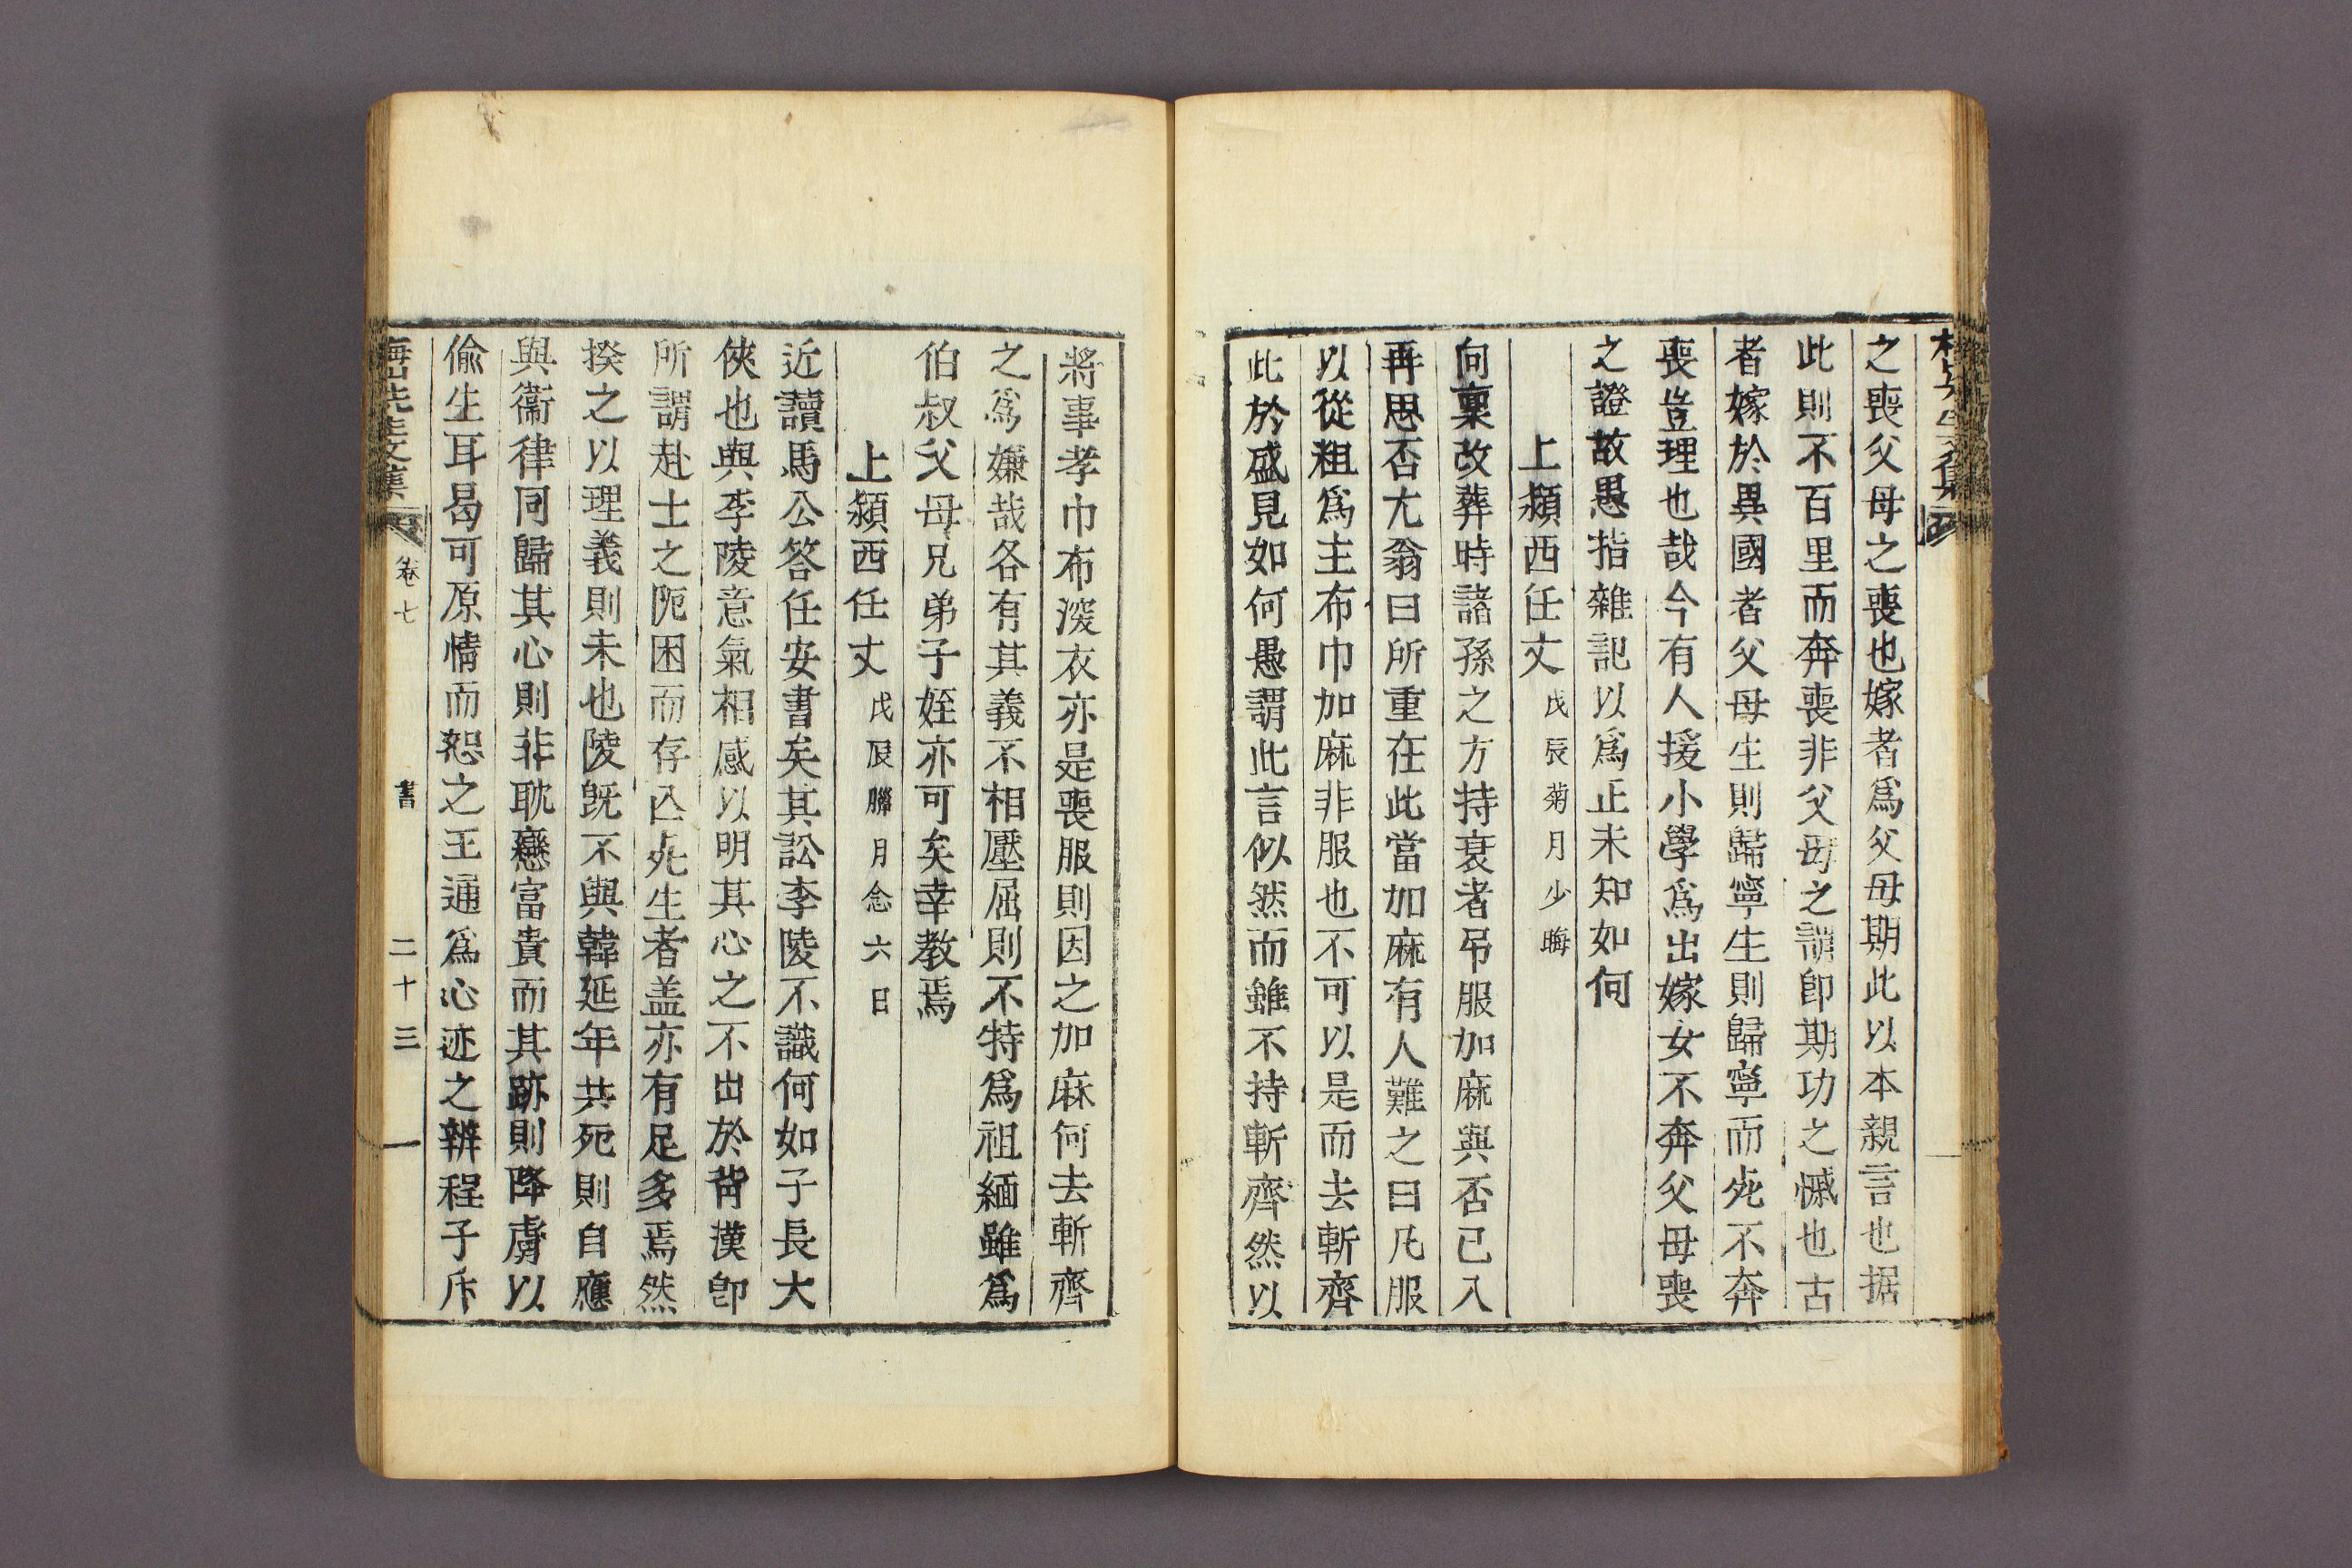 之喪父母之喪也嫁者爲父母期此以本親言也据
此則不百里而奔喪非父母之謂卽期功之慽也古
者嫁於異國者父母生則歸寧生則歸寧而死不奔
喪豈理也哉今有人援小學爲出嫁女不奔父母喪
之證故愚指雜記以爲正未知如何
上潁西任丈 戊辰菊月少晦
向稟改葬時諸孫之方持衰者吊服加麻與否已入
再思否尤翁曰所重在此當加麻有人難之曰凡服
以從粗爲主布巾加麻非服也不可以是而去斬齊
此於盛見如何愚謂此言似然而雖不持斬齊然以
將事孝巾布深衣亦是喪服則因之加麻何去斬齊
之爲嫌哉各有其義不相壓屈則不特爲祖緬雖爲
伯叔父母兄弟子姪亦可矣幸教焉
上潁西任丈 戊辰臘月念六日
近讀馬公答任安書矣其訟李陵不識何如子長大
俠也與李陵意氣相感以明其心之不出於背漢卽
所謂赴士之阨困而存亡死生者盖亦有足多焉然
揆之以理義則未也陵旣不與韓延年共死則自應
與衞律同歸其心則非耽戀富貴而其跡則降虜以
偸生耳曷可原情而恕之王通爲心迹之辨程子斥
先生文集 卷七 書 二十三